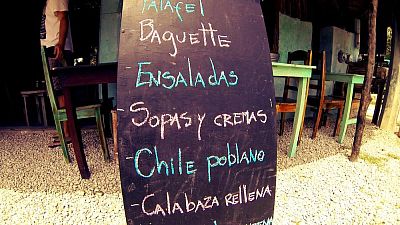 Falafel
Baguette
Ensaladas
- Sopas y cremas
- Chile poblano
- Calabaza rellena